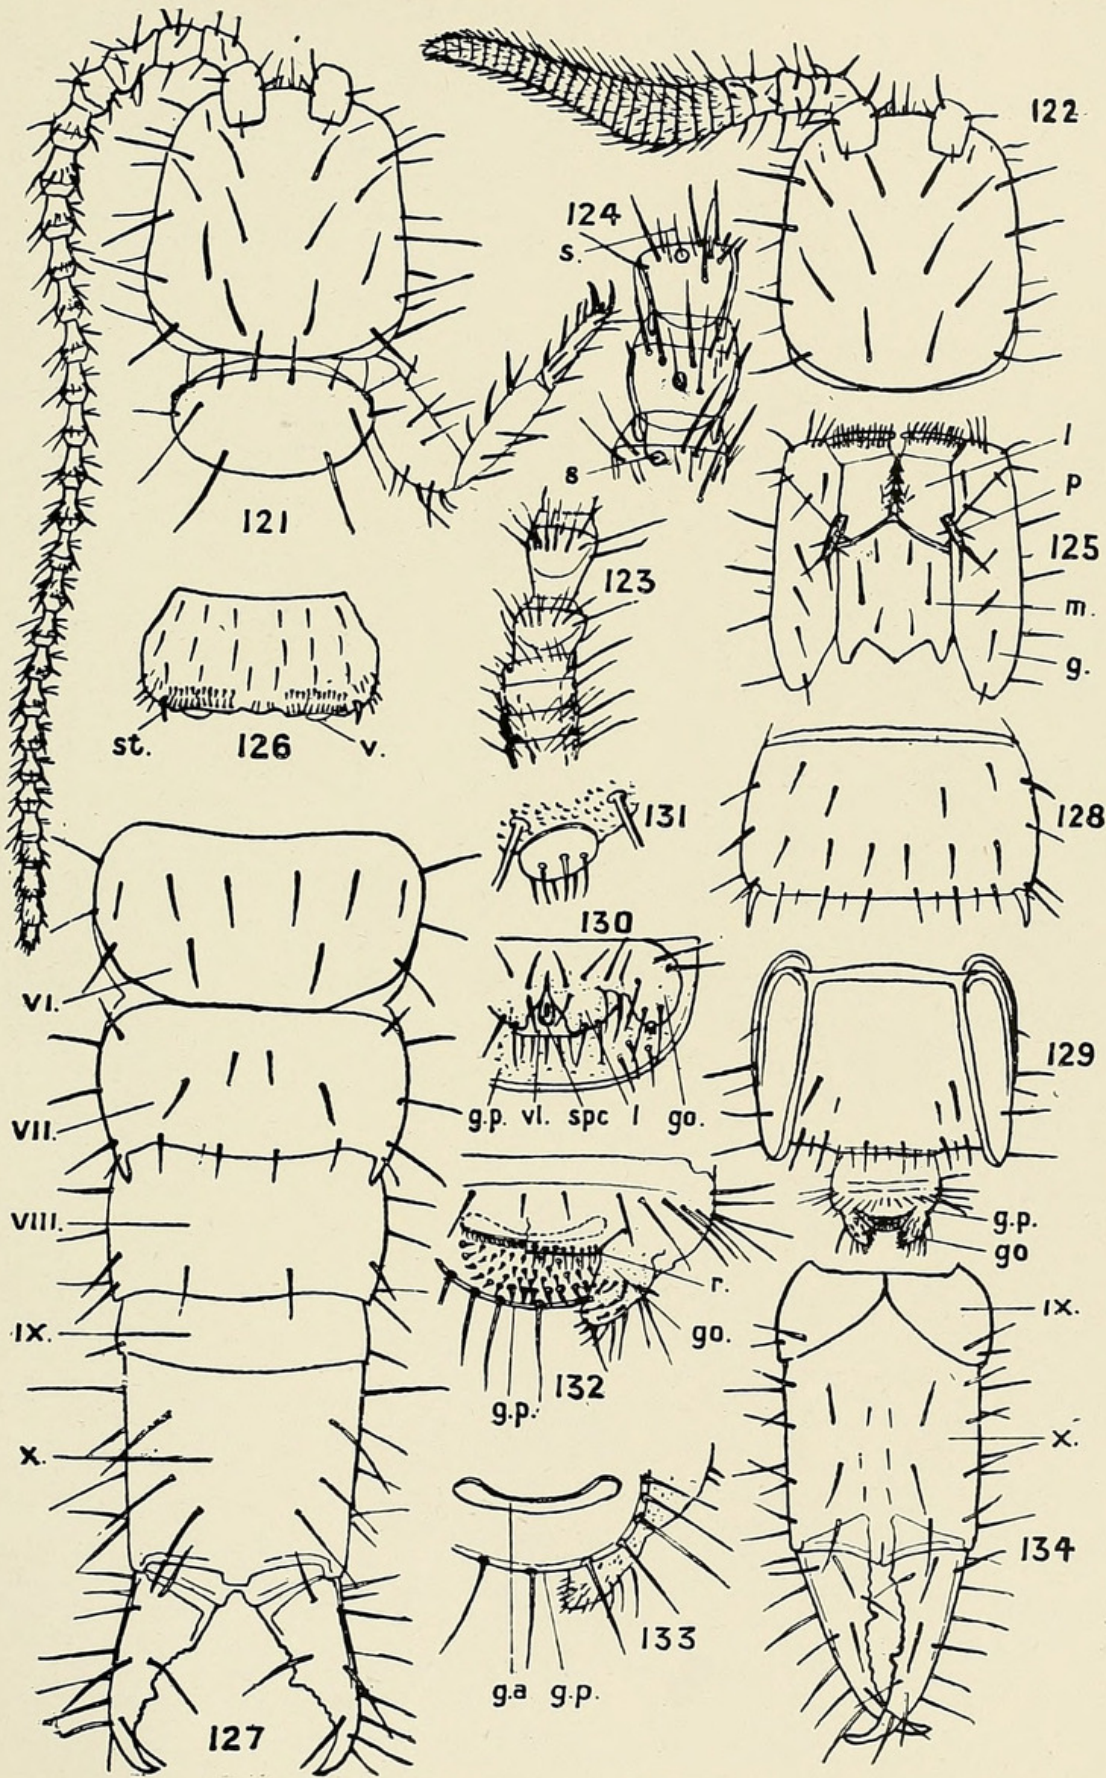 122
124
s.
s
121
l
p
125
m.
g.
123
st.
126
v.
131
128
130
VI.
VII.
g.p. vl. spc l go.
129
VIII.
g.p.
go
r.
IX.
go.
132
g.p.
IX.
X.
X.
134
133
g.a g.p.
127